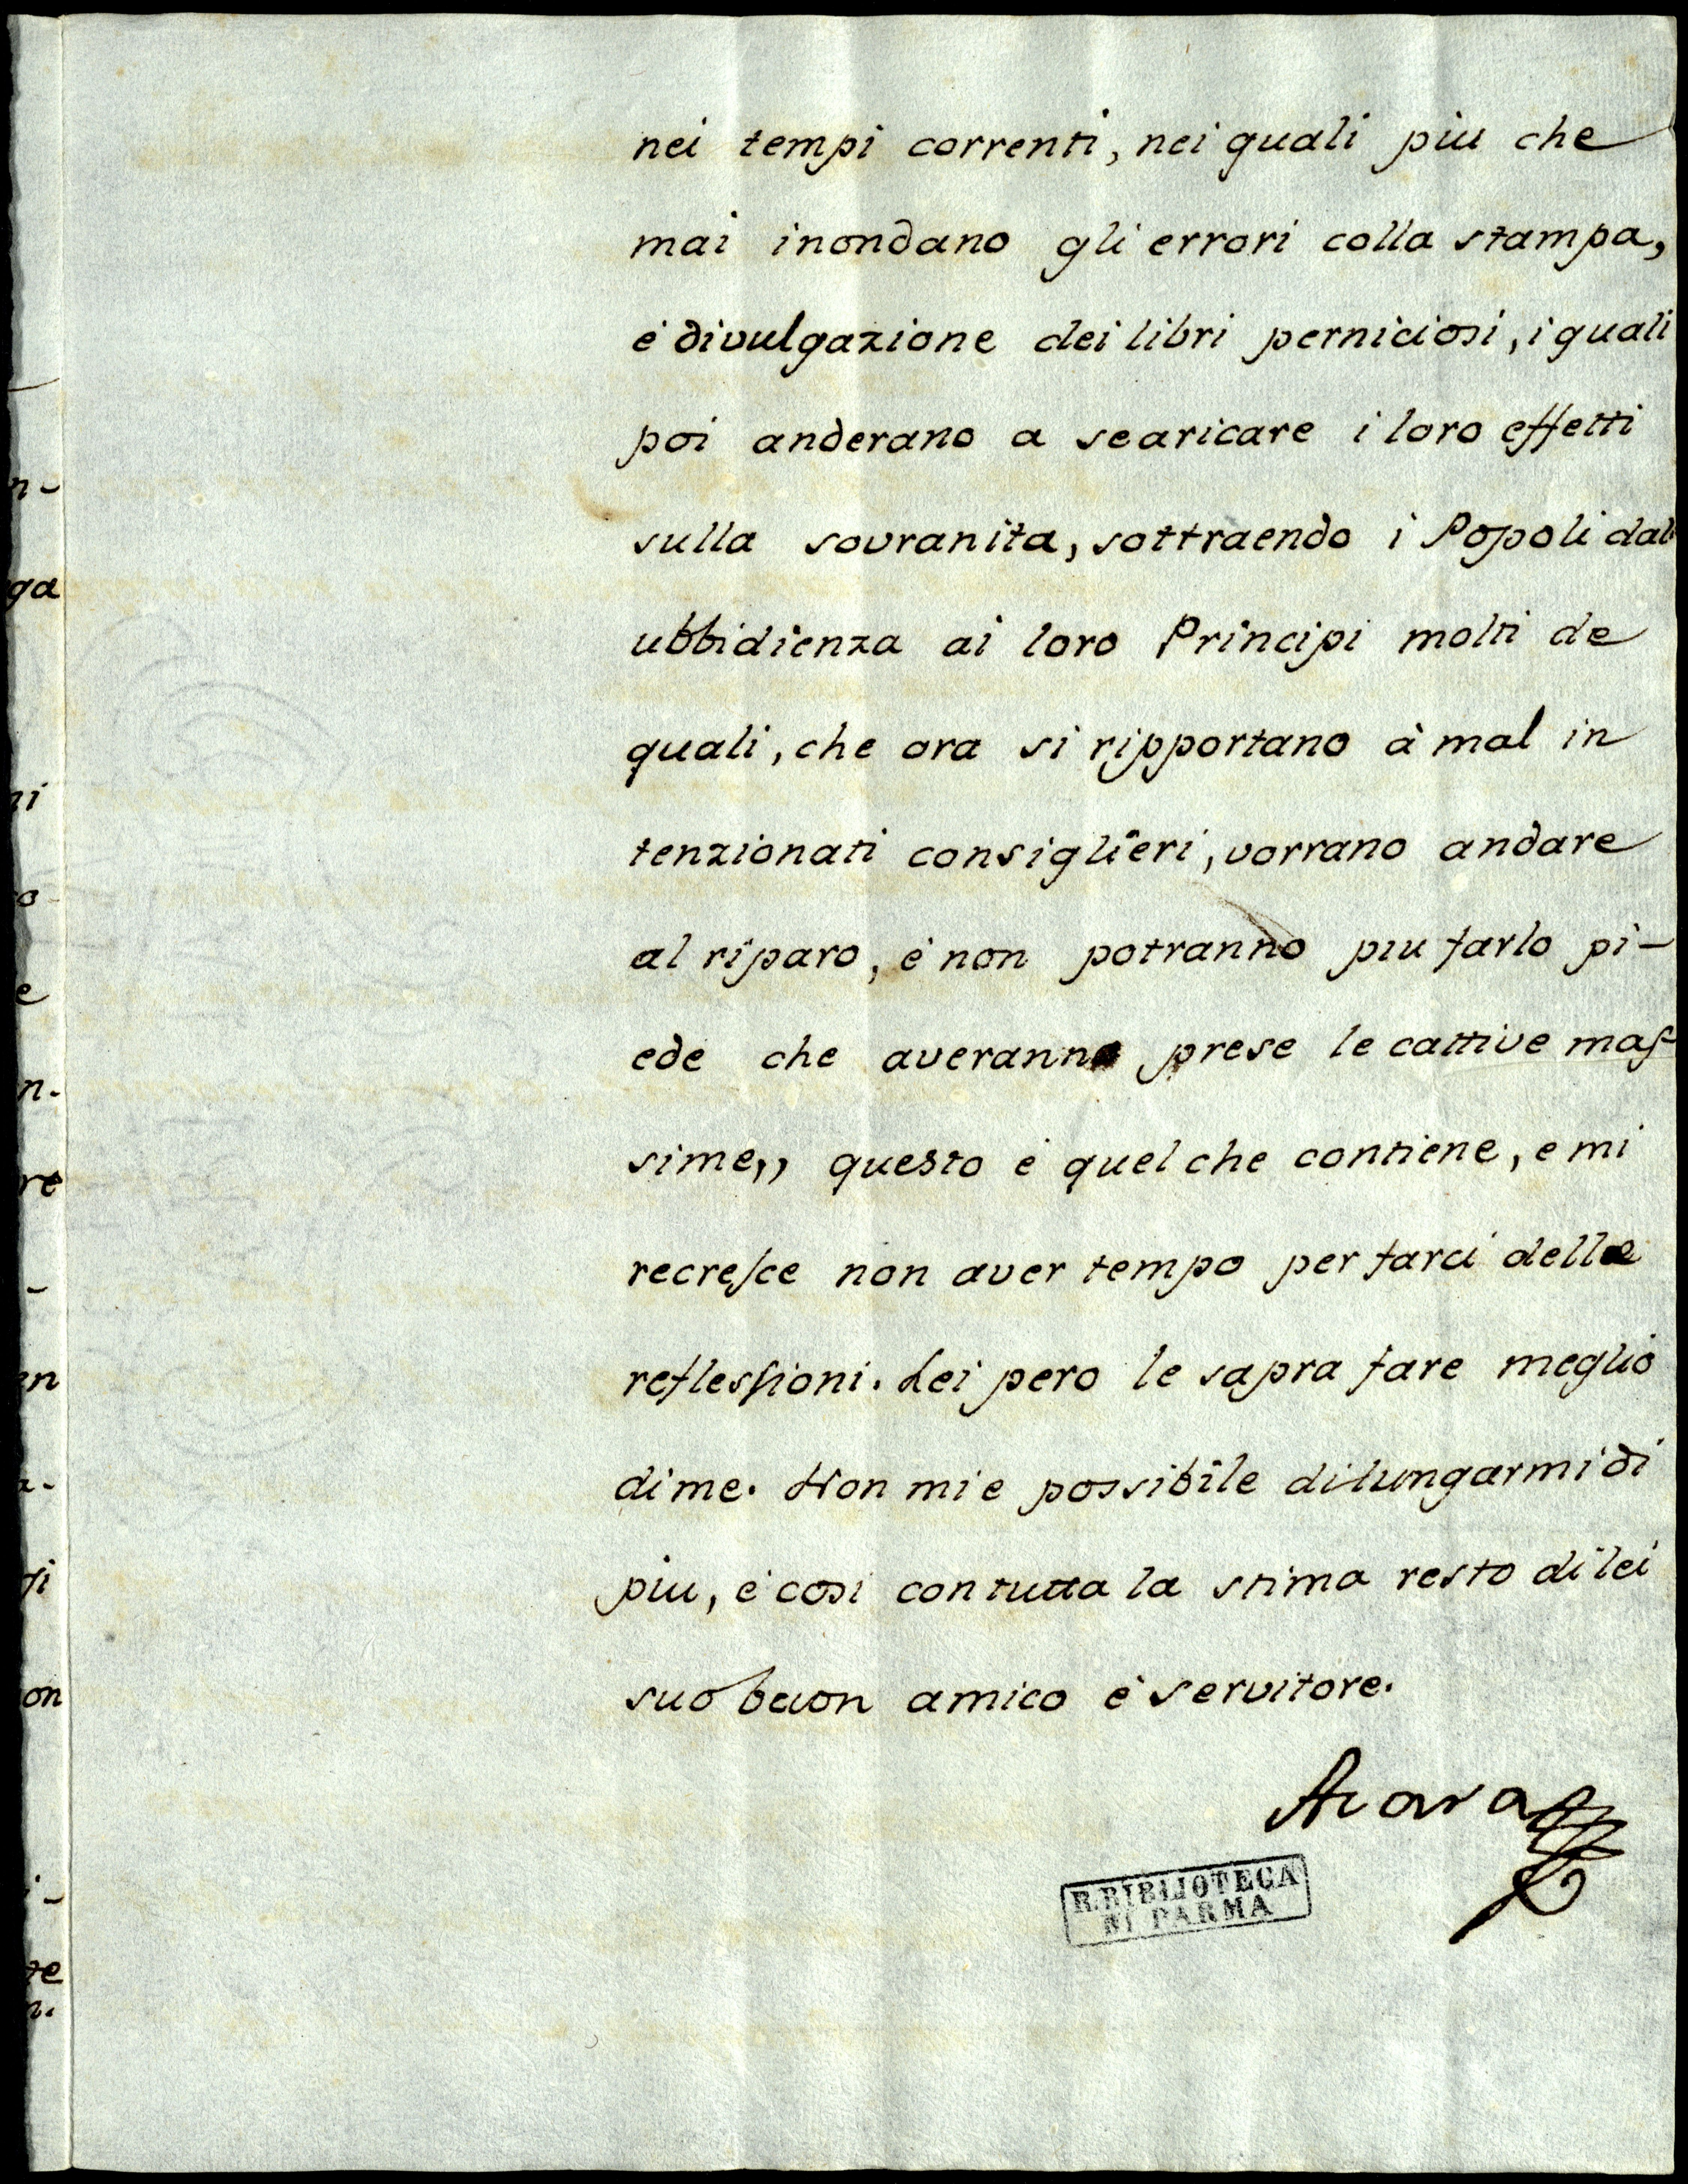 nei tempi correnti, nei quali piu che
mai inondano gli errori colla stampa,
è divulgazione dei libri perniciosi, i quali
poi anderano a scaricare i loro effetti
sulla sovranita, sottraendo i Popoli dal
ubbidienza ai loro Principi molti de
quali, che ora si ripportano à mal in
tenzionati consiglieri, vorrano andare
al riparo, è non potranno piu farlo pi-
ede che averanno prese le cattive mas
sime,, questo è quel che contiene, e mi
recresce non aver tempo per farci delle
reflessioni. Lei pero le sapra fare meglio
di me. Non mi e possibile dilungarmi di
piu, è cosi con tutta la stima resto di lei
suo buon amico è servitore.
R. BIBLIOTECA
DI PARMA